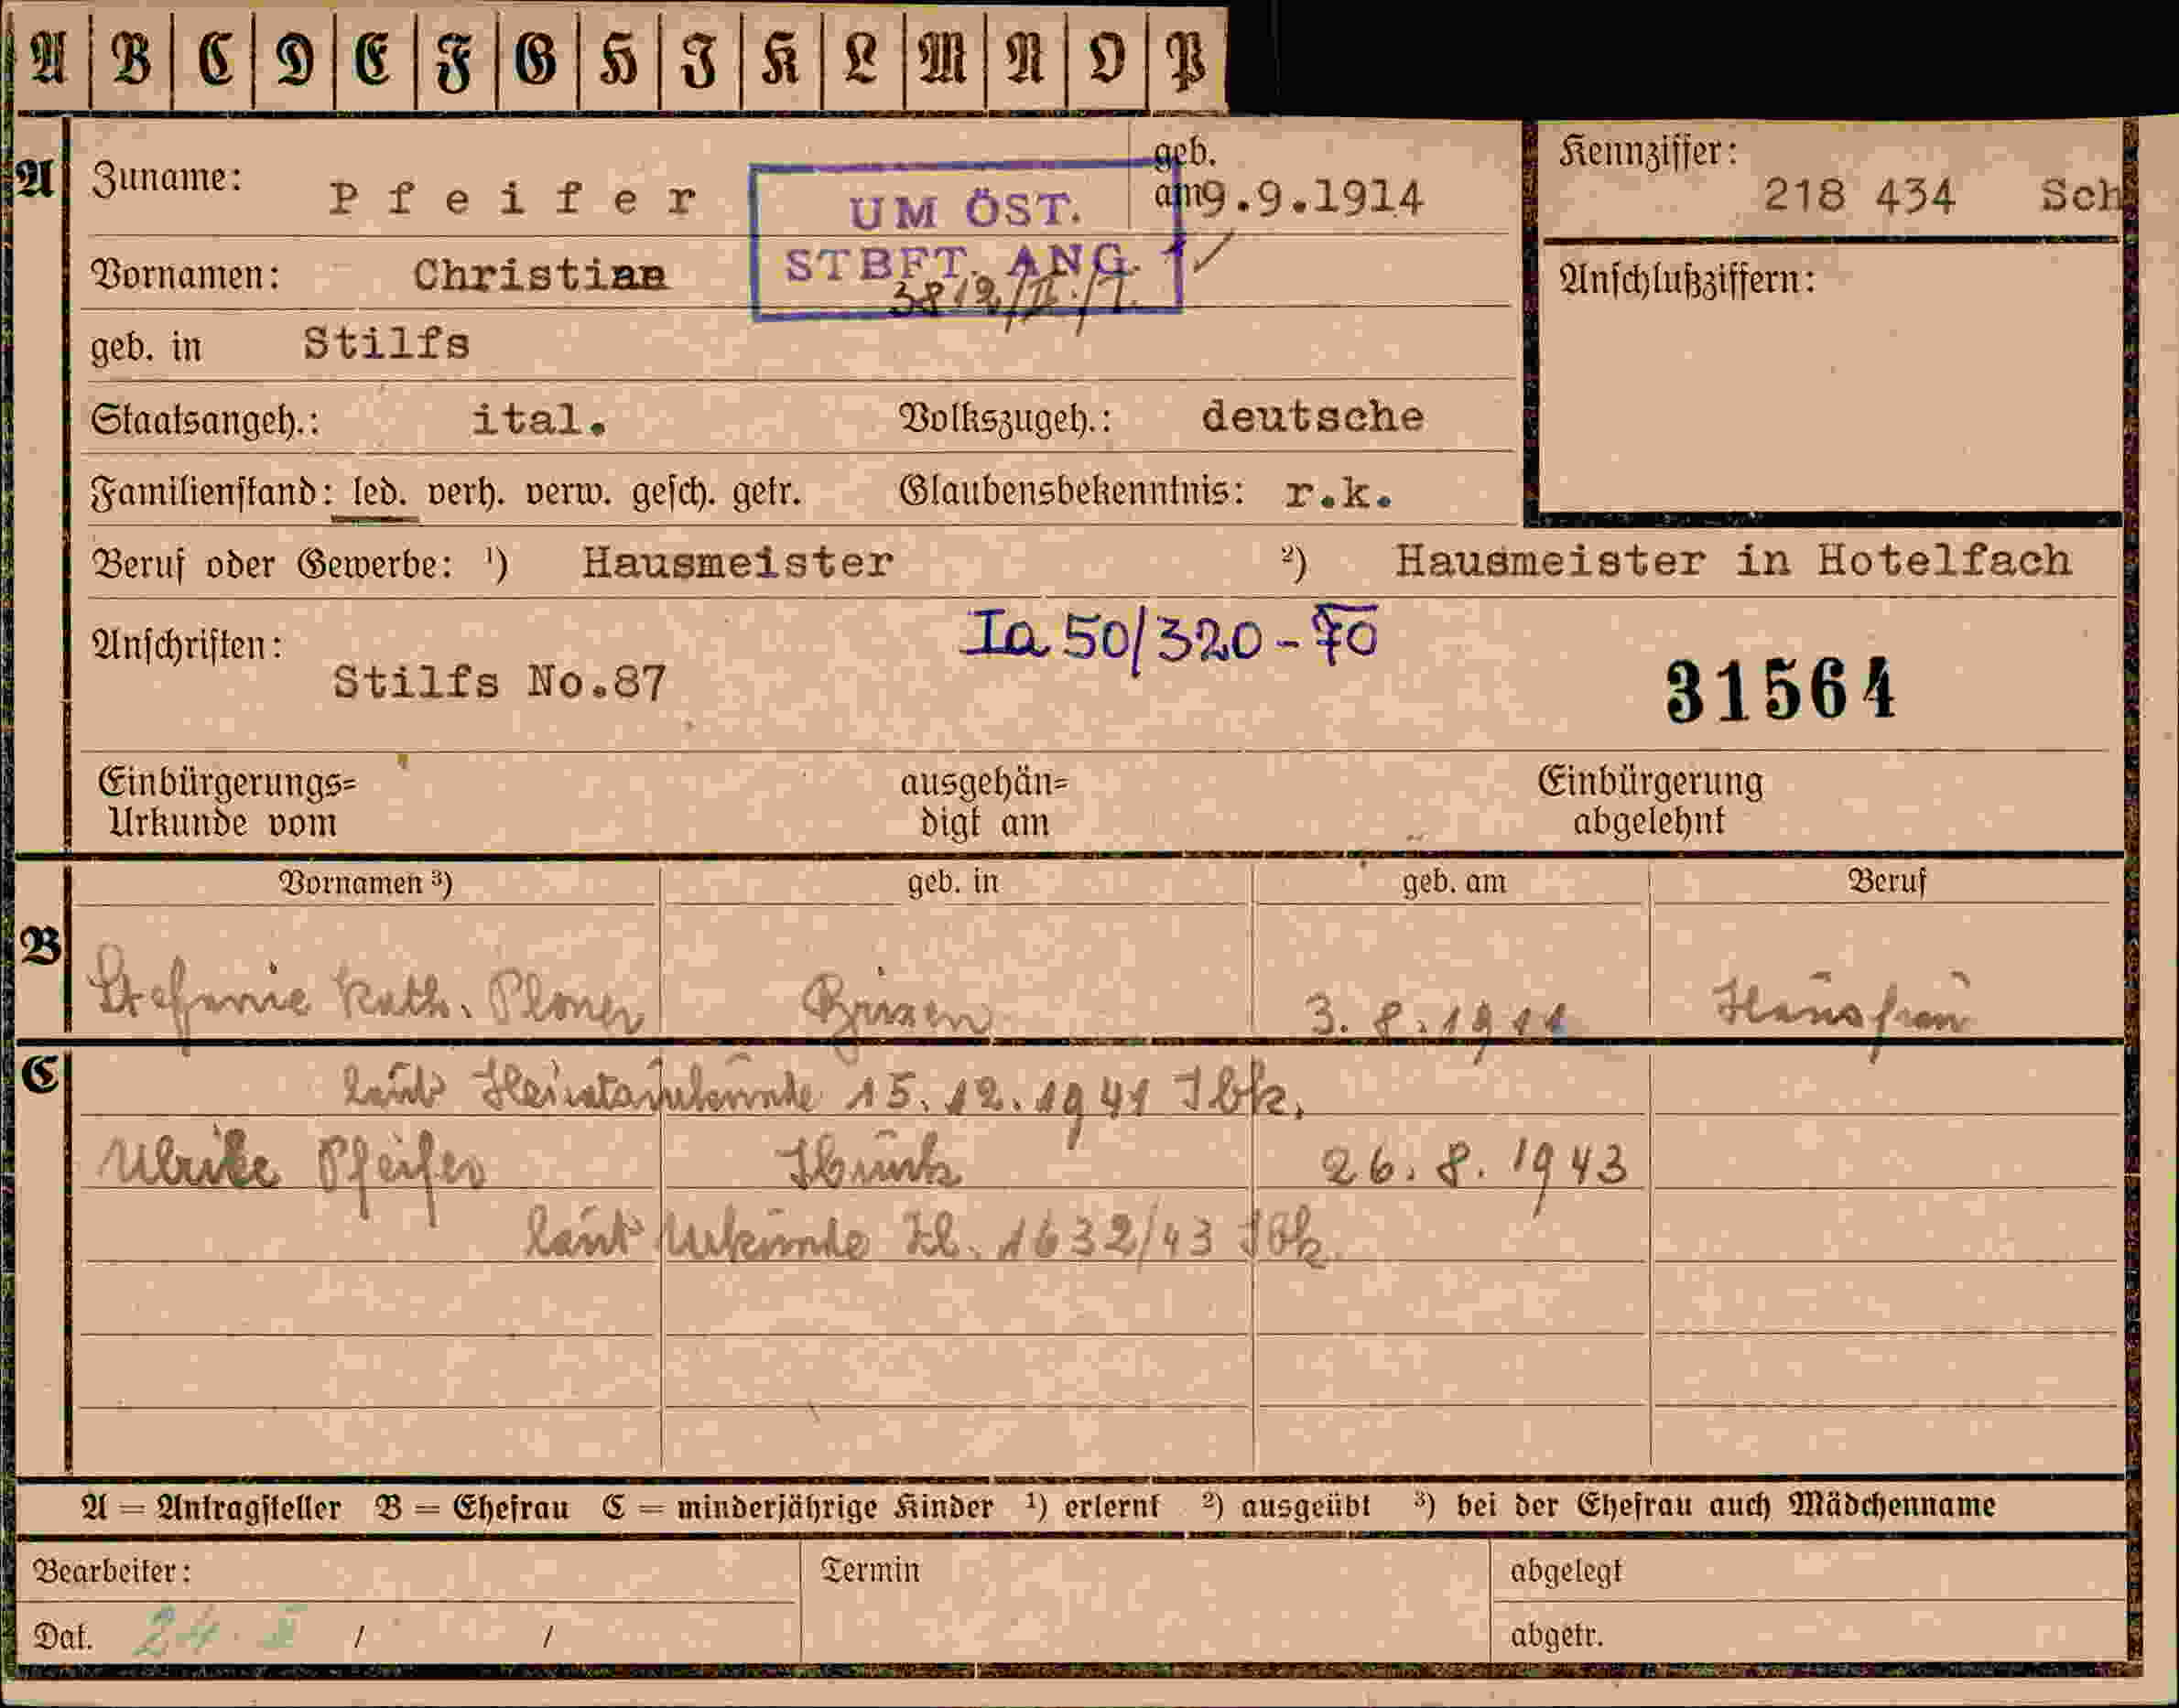 A B C D E F G H I K L M N O P
A
Zuname: Pfeifer
geb. am 9.9.1914
Kennziffer: 218 434 Sch
UM ÖST.
STBFT. ANG.
3812/II./1.
Vornamen: Christian
Anschlußziffern:
geb. in Stilfs
Staatsangeh.: ital. Volkszugeh.: deutsche
Familienstand: led. verh. verw. gesch. getr. Glaubensbekenntnis: r.k.
Beruf oder Gewerbe: ¹) Hausmeister ²) Hausmeister in Hotelfach
Ia 50/320-70
Anschriften:
Stilfs No.87
31564
Einbürgerungs= ausgehän= Einbürgerung
Urkunde vom digt am abgelehnt
Vornamen ³) geb. in geb. am Beruf
B
Stefanie Kath. Ploner Brixen 3.8.1911 Hausfrau
C
laut Heiratsurkunde 15.12.1941 Ibk.
Ulrike Pfeifer Ibruck 26.8.1943
laut Urkunde Zl. 1632/43 Ibk.
A = Antragsteller B = Ehefrau C = minderjährige Kinder ¹) erlernt ²) ausgeübt ³) bei der Ehefrau auch Mädchenname
Bearbeiter: Termin abgelegt
Dat. 24. / / abgetr.